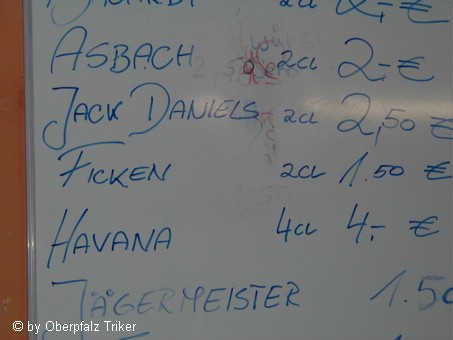 2cl 2,- €
ASBACH 2cl 2,- €
JACK DANIELS 2cl 2,50 €
FICKEN 2cl 1.50 €
HAVANA 4cl 4,- €
JÄGERMEISTER 1.50
© by Oberpfalz Triker